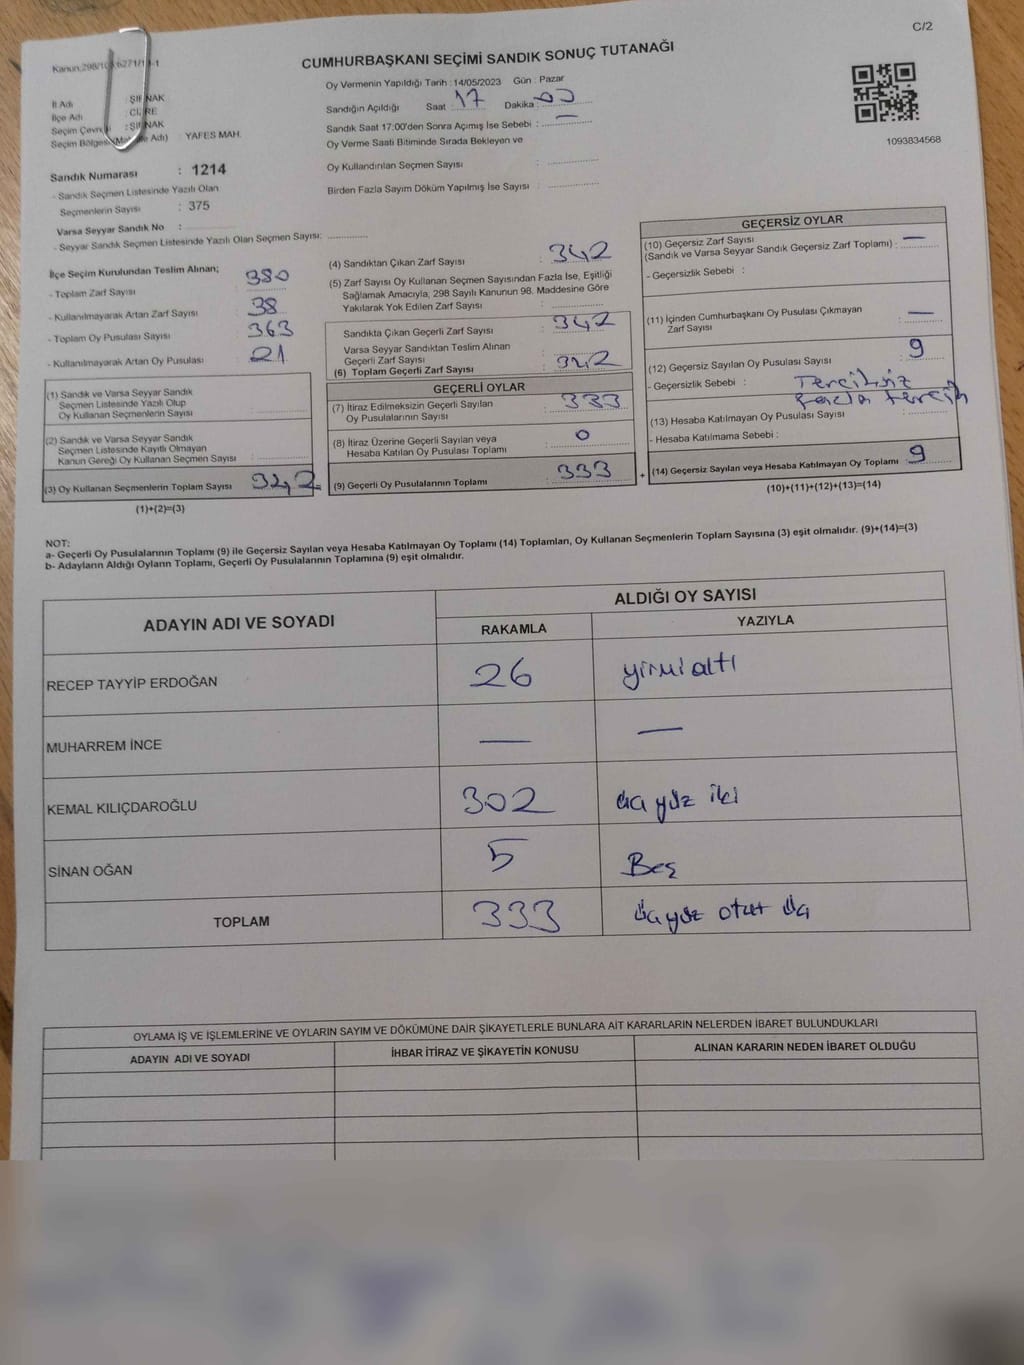 C/2
CUMHURBAŞKANI SEÇİMİ SANDIK SONUÇ TUTANAĞI
Oy Vermenin Yapıldığı Tarih : 14/05/2023 Gün : Pazar
Sandığın Açıldığı Saat : 17 Dakika : 00
Sandık Saat 17:00'den Sonra Açımış İse Sebebi : —
Oy Verme Saati Bitiminde Sırada Bekleyen ve
Oy Kullandırılan Seçmen Sayısı :
Birden Fazla Sayım Döküm Yapılmış İse Sayısı :
1093834568
İl Adı : ŞIRNAK
İlçe Adı
Seçim Çevre
Seçim Bölgesi YAFES MAH.
Sandık Numarası : 1214
- Sandık Seçmen Listesinde Yazılı Olan
Seçmenlerin Sayısı : 375
Varsa Seyyar Sandık No :
- Seyyar Sandık Seçmen Listesinde Yazılı Olan Seçmen Sayısı:
İlçe Seçim Kurulundan Teslim Alınan;
- Toplam Zarf Sayısı : 380
- Kullanılmayarak Artan Zarf Sayısı : 38
- Toplam Oy Pusulası Sayısı : 363
- Kullanılmayarak Artan Oy Pusulası : 21
(1) Sandık ve Varsa Seyyar Sandık
Seçmen Listesinde Yazılı Olup
Oy Kullanan Seçmenlerin Sayısı :
(2) Sandık ve Varsa Seyyar Sandık
Seçmen Listesinde Kayıtlı Olmayan
Kanun Gereği Oy Kullanan Seçmen Sayısı :
(3) Oy Kullanan Seçmenlerin Toplam Sayısı 342 =
(1)+(2)=(3)
(4) Sandıktan Çıkan Zarf Sayısı : 342
(5) Zarf Sayısı Oy Kullanan Seçmen Sayısından Fazla İse, Eşitliği
Sağlamak Amacıyla, 298 Sayılı Kanunun 98. Maddesine Göre
Yakılarak Yok Edilen Zarf Sayısı :
Sandıkta Çıkan Geçerli Zarf Sayısı : 342
Varsa Seyyar Sandıktan Teslim Alınan
Geçerli Zarf Sayısı :
(6) Toplam Geçerli Zarf Sayısı : 342
GEÇERLİ OYLAR
(7) İtiraz Edilmeksizin Geçerli Sayılan
Oy Pusulalarının Sayısı : 333
(8) İtiraz Üzerine Geçerli Sayılan veya
Hesaba Katılan Oy Pusulası Toplamı : 0
(9) Geçerli Oy Pusulalarının Toplamı : 333 +
GEÇERSİZ OYLAR
(10) Geçersiz Zarf Sayısı
(Sandık ve Varsa Seyyar Sandık Geçersiz Zarf Toplamı) : —
- Geçersizlik Sebebi :
(11) İçinden Cumhurbaşkanı Oy Pusulası Çıkmayan
Zarf Sayısı : —
(12) Geçersiz Sayılan Oy Pusulası Sayısı : 9
- Geçersizlik Sebebi : Tercihsiz
fazla tercih
(13) Hesaba Katılmayan Oy Pusulası Sayısı :
- Hesaba Katılmama Sebebi :
(14) Geçersiz Sayılan veya Hesaba Katılmayan Oy Toplamı : 9
(10)+(11)+(12)+(13)=(14)
NOT:
a- Geçerli Oy Pusulalarının Toplamı (9) ile Geçersiz Sayılan veya Hesaba Katılmayan Oy Toplamı (14) Toplamları, Oy Kullanan Seçmenlerin Toplam Sayısına (3) eşit olmalıdır. (9)+(14)=(3)
b- Adayların Aldığı Oyların Toplamı, Geçerli Oy Pusulalarının Toplamına (9) eşit olmalıdır.
ADAYIN ADI VE SOYADI ALDIĞI OY SAYISI
RAKAMLA YAZIYLA
RECEP TAYYİP ERDOĞAN 26 yirmi altı
MUHARREM İNCE — —
KEMAL KILIÇDAROĞLU 302 üç yüz iki
SİNAN OĞAN 5 Beş
TOPLAM 333 üç yüz otuz üç
OYLAMA İŞ VE İŞLEMLERİNE VE OYLARIN SAYIM VE DÖKÜMÜNE DAİR ŞİKAYETLERLE BUNLARA AİT KARARLARIN NELERDEN İBARET BULUNDUKLARI
ADAYIN ADI VE SOYADI İHBAR İTİRAZ VE ŞİKAYETİN KONUSU ALINAN KARARIN NEDEN İBARET OLDUĞU